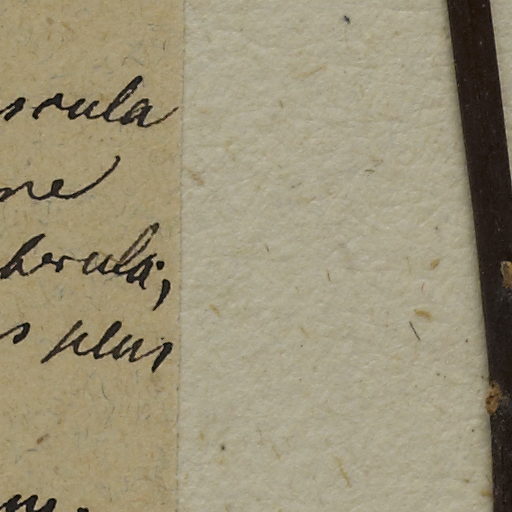 scula
ne
berula;
s plus
m.